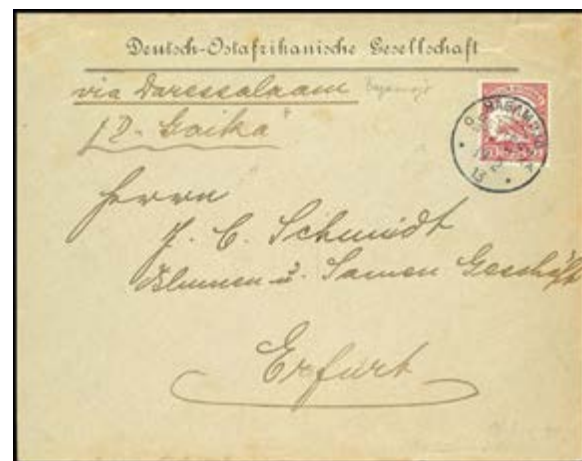 Deutsch-Ostafrikanische Gesellschaft
via Daressalaam
"D. Gaika"
Herrn
J. C. Schmidt
Blumen- u. Samen Geschäft
Erfurt